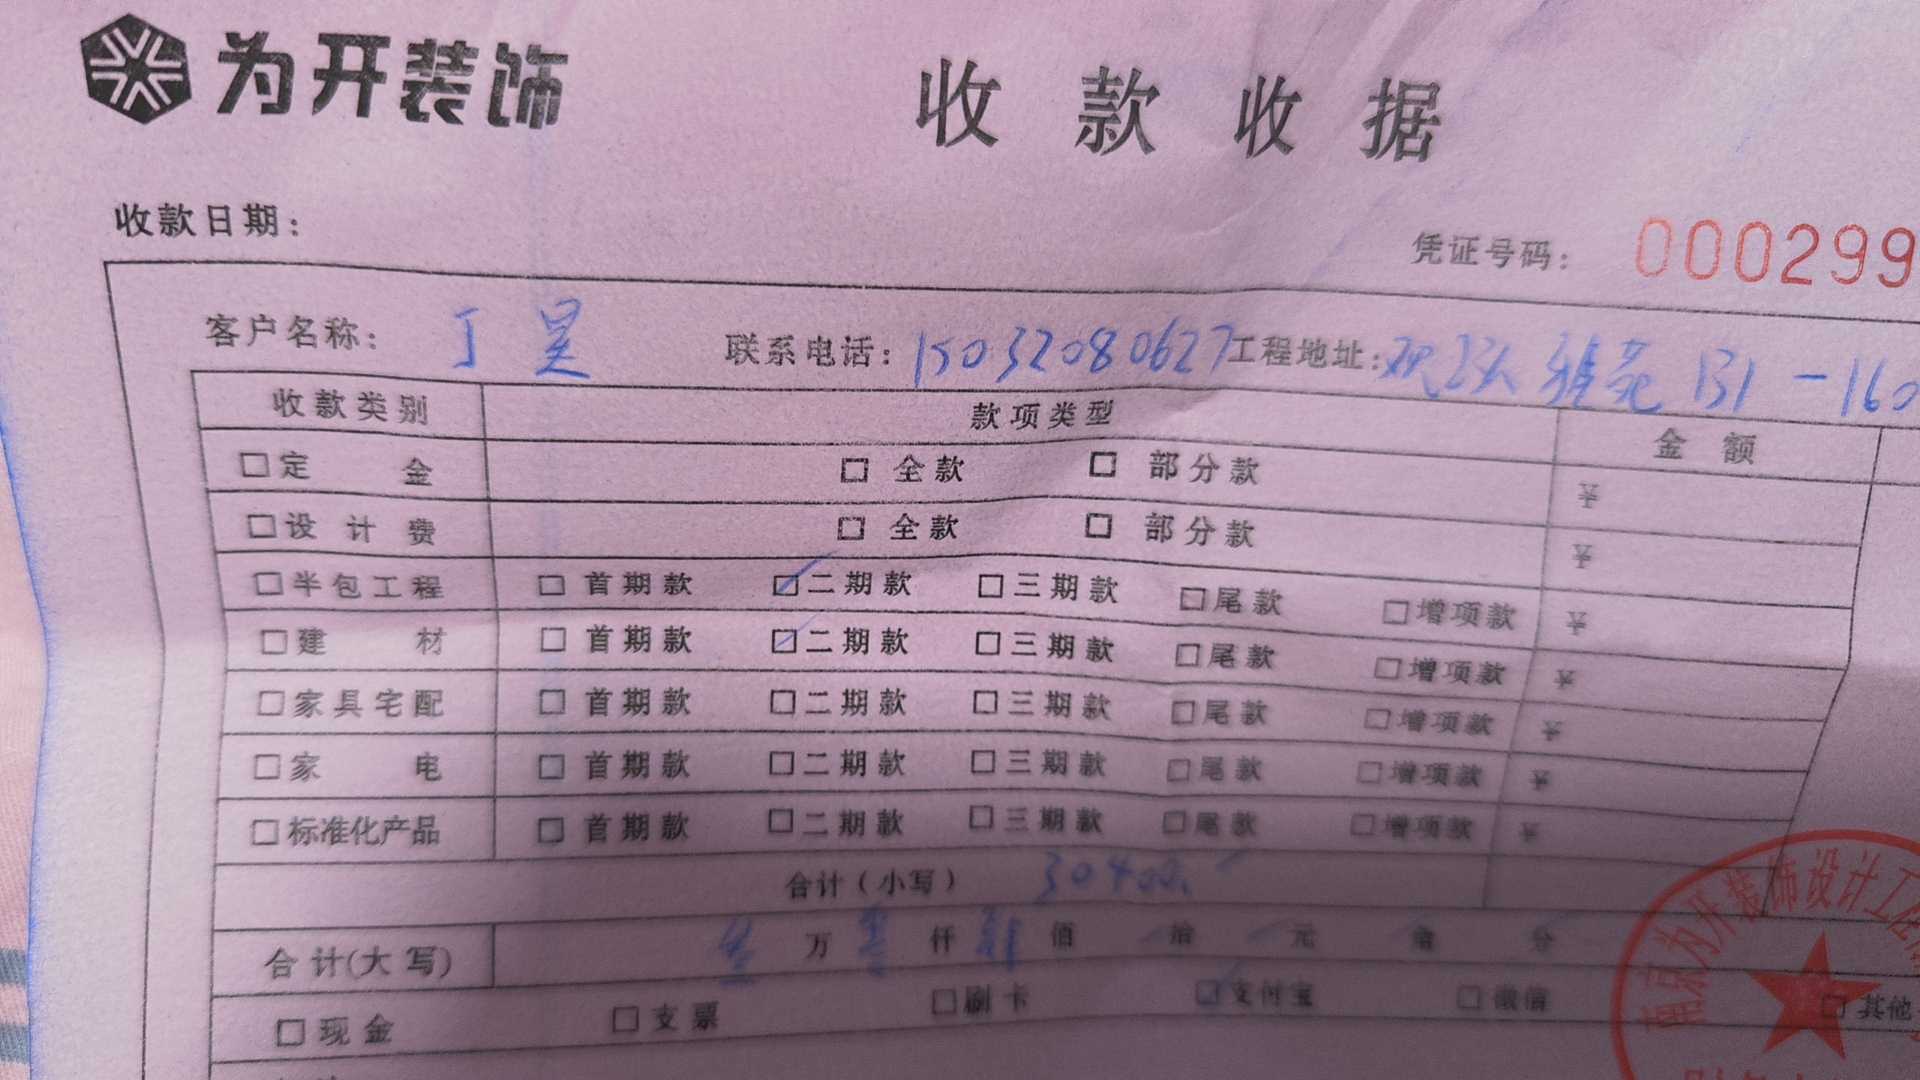 为开装饰
收款收据
收款日期：
凭证号码：000299
客户名称：丁昊 联系电话：15032080627 工程地址：雅苑131-160
收款类别 款项类型 金额
□定金 □全款 □部分款 ¥
□设计费 □全款 □部分款 ¥
□半包工程 □首期款 ☑二期款 □三期款 □尾款 □增项款 ¥
□建材 □首期款 ☑二期款 □三期款 □尾款 □增项款 ¥
□家具宅配 □首期款 □二期款 □三期款 □尾款 □增项款 ¥
□家电 □首期款 □二期款 □三期款 □尾款 □增项款 ¥
□标准化产品 □首期款 □二期款 □三期款 □尾款 □增项款 ¥
合计（小写） 30400.
合计(大写) 叁万零仟肆佰 拾 元 角 分
□现金 □支票 □刷卡 ☑支付宝 □微信 □其他
南京为开装饰设计工程